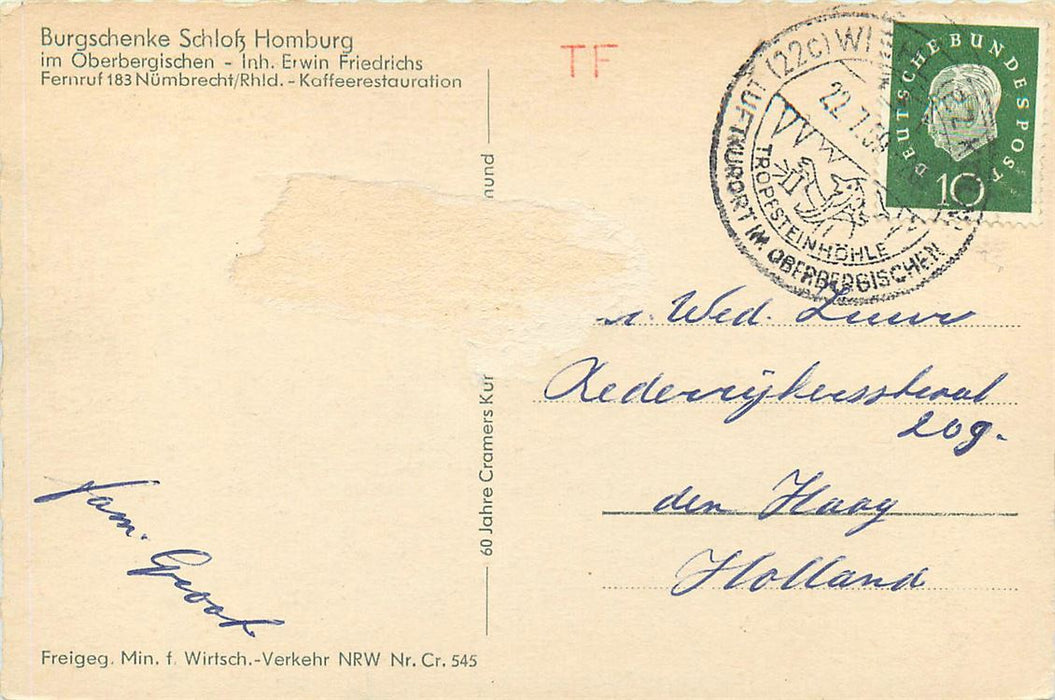 Burgschenke Schloß Homburg
im Oberbergischen - Inh. Erwin Friedrichs
Fernruf 183 Nümbrecht/Rhld. - Kaffeerestauration
TF
LUFTKURORT IM OBERBERGISCHEN
(22c) WI
22.7.59
TROPFSTEINHÖHLE
DEUTSCHE BUNDESPOST
10
60 Jahre Cramers Kun
mund
Wed.
Rederijkersstraat
209.
den Haag
Holland
Fam. Groot
Freigeg. Min. f. Wirtsch.-Verkehr NRW Nr. Cr. 545